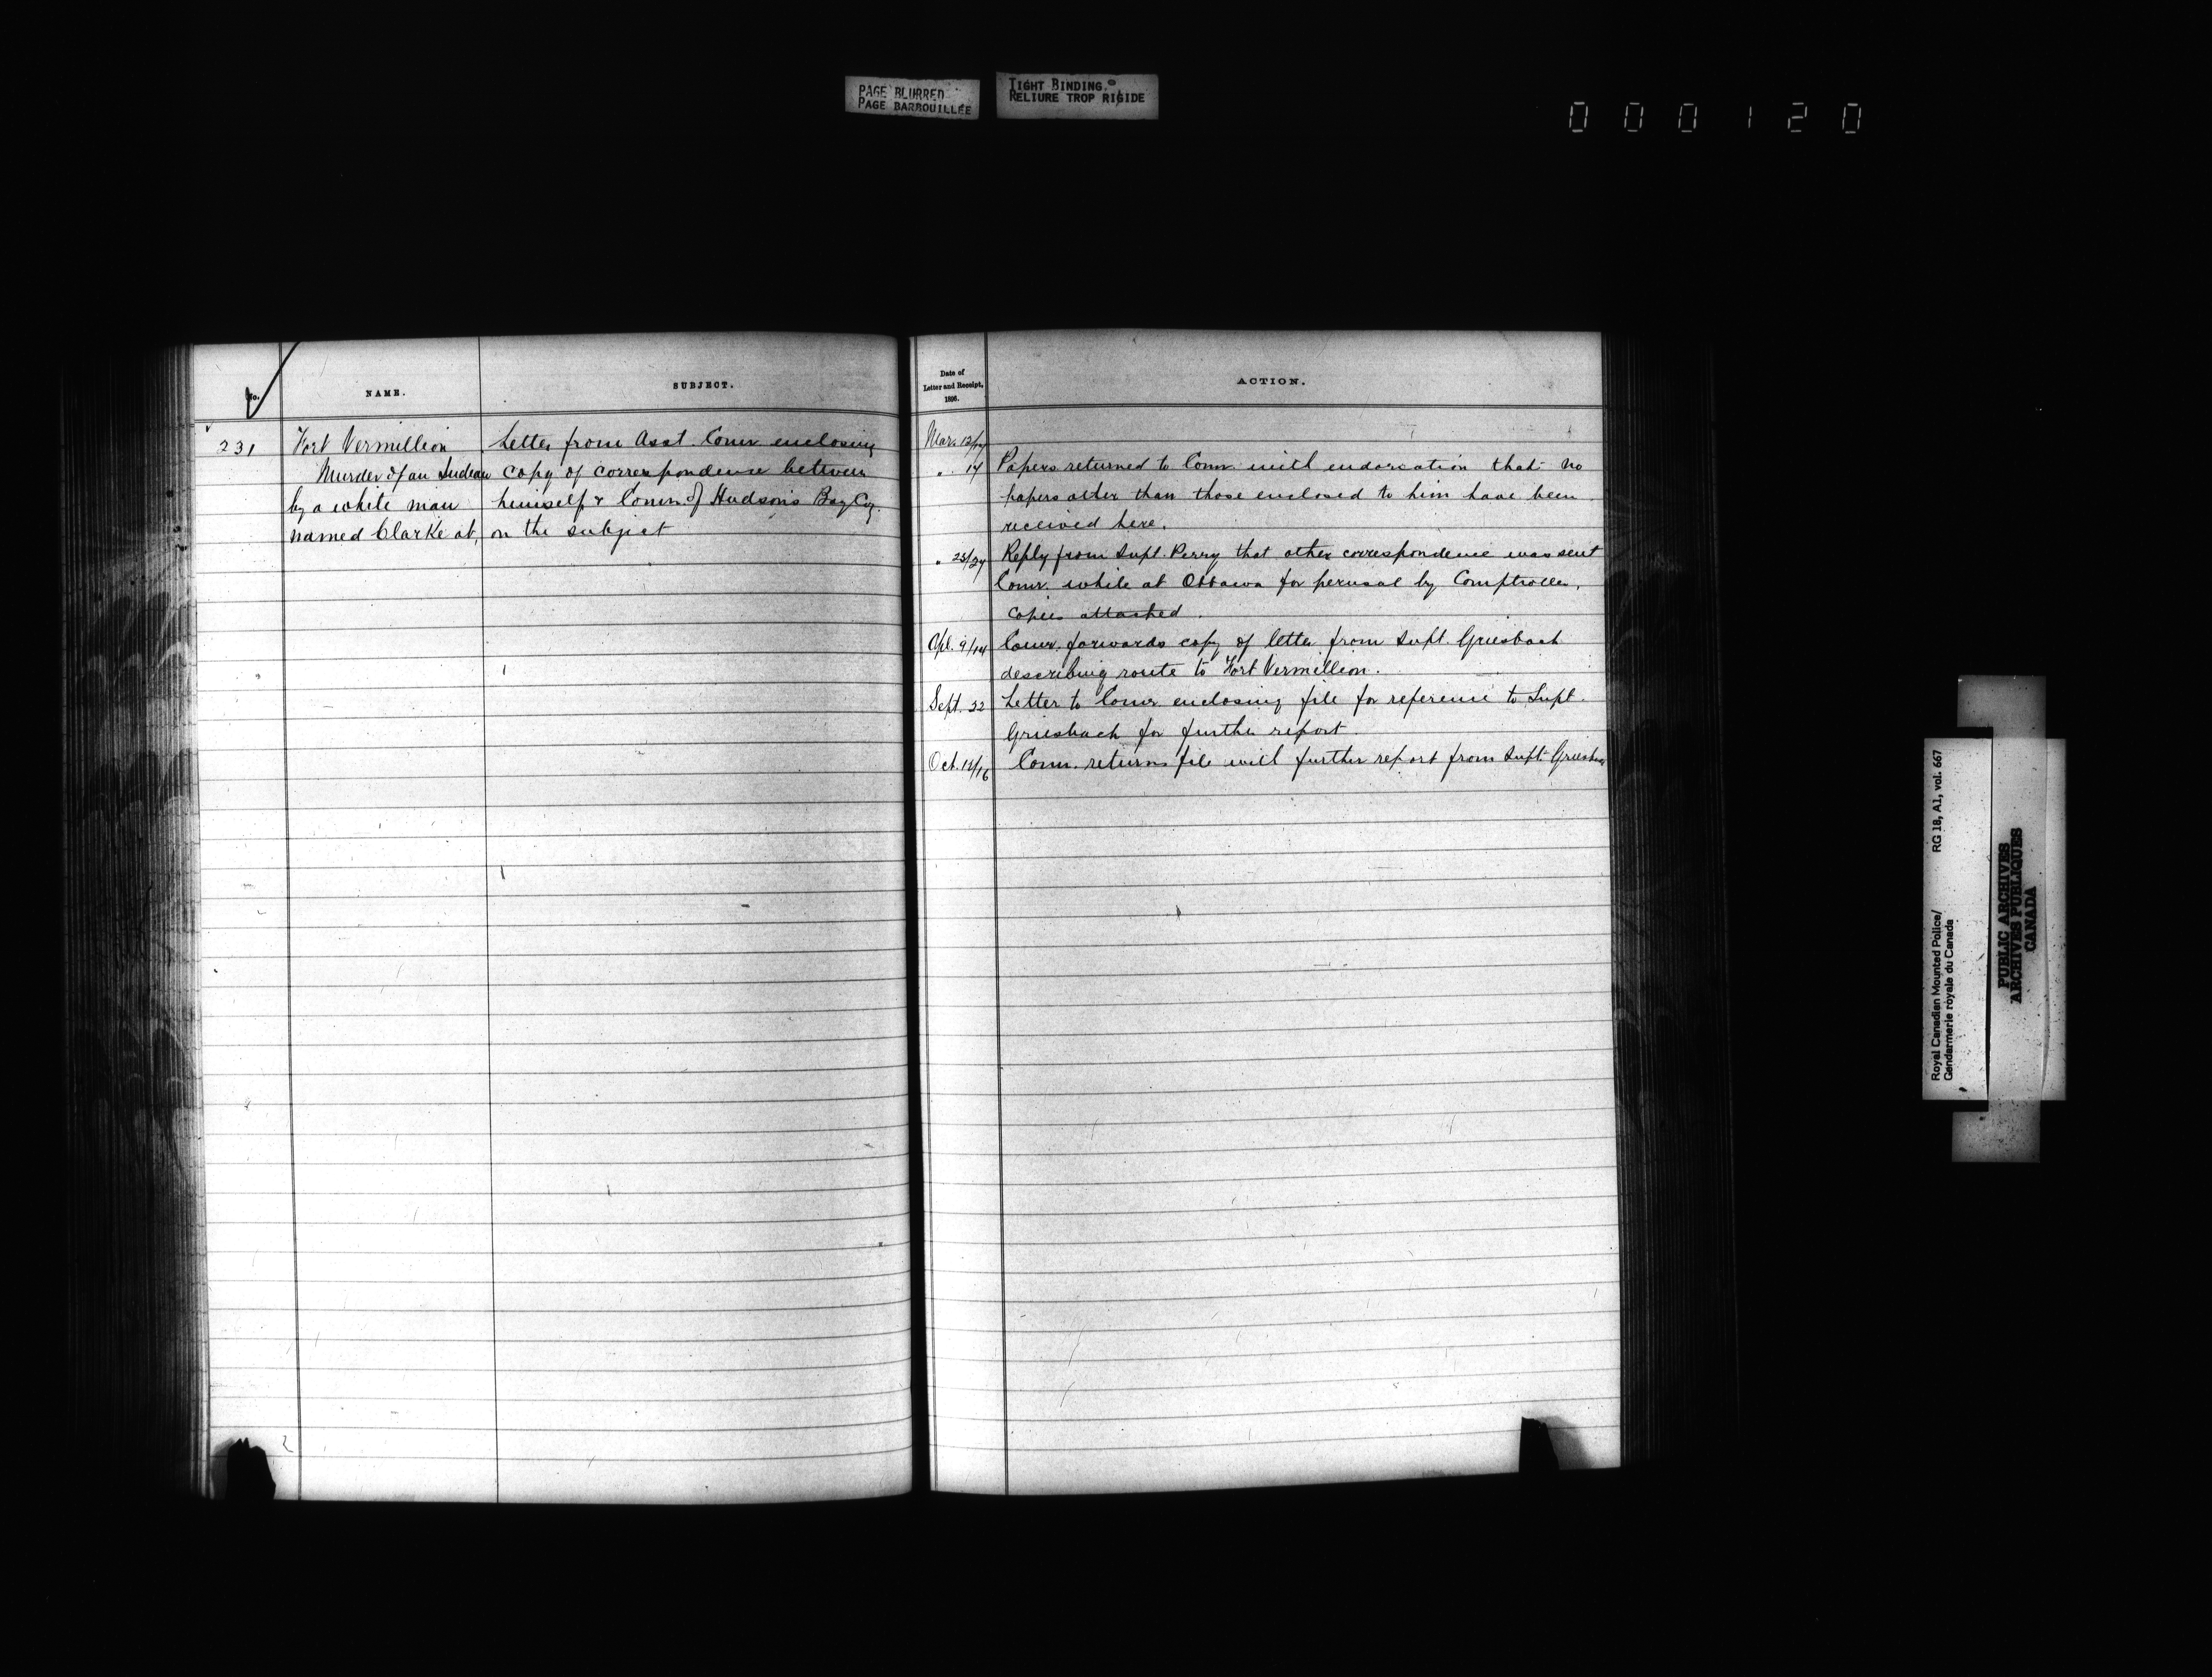 PAGE BLURRED
PAGE BARBOUILLÉE
TIGHT BINDING.
RELIURE TROP RIGIDE
0 0 0 1 2 0
No.
NAME.
SUBJECT.
231
Fort Vermillion
Murder of an Indian
by a white man
named Clarke at,
Letter from Asst. Comr enclosing
copy of correspondence between
himself & Comr. of Hudson's Bay Coy.
on the subject
Date of
Letter and Receipt,
1896.
ACTION.
Mar. 12/17
" 17 Papers returned to Comr. with endorsation that no
papers other than those enclosed to him have been
received here.
" 23/27 Reply from Supt. Perry that other correspondence was sent
Comr. while at Ottawa for perusal by Comptroller.
Copies attached.
Apl. 9/14 Comr. forwards copy of letter from Supt. Griesbach
describing route to Fort Vermillion.
Sept. 22 Letter to Comr enclosing file for reference to Supt.
Griesbach for further report.
Oct. 12/16 Comr. returns file with further report from Supt. Griesbach
Royal Canadian Mounted Police/ RG 18, A1, vol. 667
Gendarmerie royale du Canada
PUBLIC ARCHIVES
ARCHIVES PUBLIQUES
CANADA